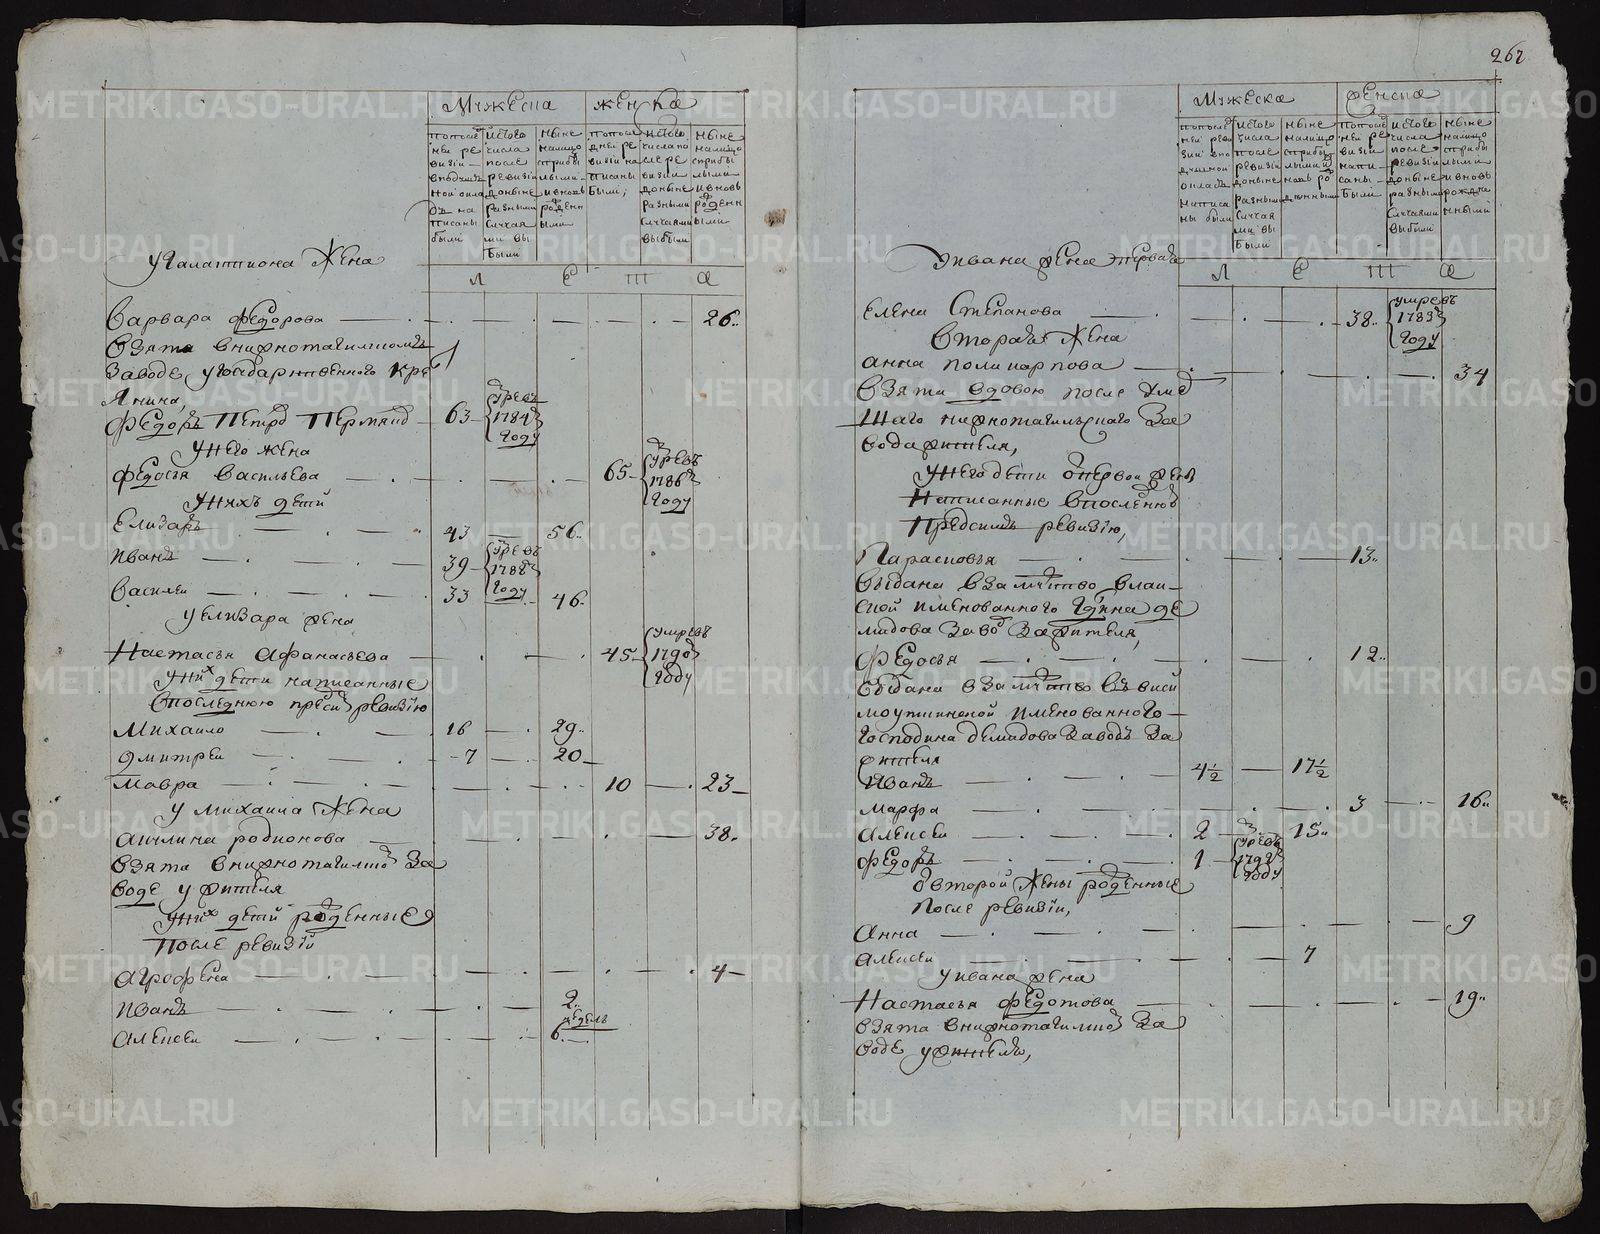 262
Мужеска
женска
попосле
дней ре
визіи
вподушн
ной окла
дъ на
писаны
были
Изтого
числа
после
ревизіи
доныне
разными
случая
ми вы
были
Ныне
налицо
сприбы
лыми
ивновь
рожденн
ыми
попосле
дней ре
визіи на
писаны
были,
изтого
числа по
сле ре
визіи
доныне
разными
случаями
выбыли
Ныне
налицо
сприбы
лыми
ивновь
рожденн
ыми
Л Е Т А
У Галактиона Жена
Варвара Федорова 26
Взята внижнотагилскомъ
Заводе, угосударственного кре
янина,
Федоръ Петровъ Пермяковъ 63 умревъ 1784 году
Унего жена
Федосья Васильева 65 умревъ 1786 году
Унихъ дети
Елизаръ 43 56
Иванъ 39 умревъ 1788 году
Василеи 33 46
У елизара жена
Настасья Афанасьева 45 умревъ 1790 году
Унихъ дети написанные
впоследнюю предсимъ ревизию
Михаило 16 29
Дмитреи 7 20
Мавра 10 23
У михаила Жена
Акилина родионова 38
Взята внижнотагилскомъ За
воде у жителя
Унихъ дети рожденные
После ревизіи
Агрофена 4
Иванъ 2
Алексеи 6 недель
Мужеска
женска
попосле
дней реви
зіи впо
душной
окладъ
написа
ны были
Изтого
числа
после
ревизіи
доныне
разными
случая
ми вы
были
Ныне
налицо
сприбы
лыми и
новь ро
жденными
попосле
дней ре
визіи
напи
саны
были
изтого
числа
после
ревизіи
доныне
разными
случаями
выбыли
Ныне
налицо
сприбы
лыми
ивновь
рожде
нными
Уивана жена первая
Л Е Т А
Елена Степанова 38 умревъ 1783 году
Вторая Жена
Анна поликарпова 34
Взята вдовою после умер
шаго нижнотагилскаго За
вода жителя,
Унего дети отпервои жены
Написанные впоследнюю
Предсимъ ревизию,
Парасковья 13
Выдана взамужство
скои имянованного Гдна де
мидова Завода Зажителя,
Федосья 12
Выдана взамужство въ виси
моуткинской имянованного
Господина демидова Заводъ За
жителя
Иванъ 4½ 17½
Марфа 3 16
Алексеи 2 15
Федоръ 1 умревъ 1792 году
От второй Жены рожденные
После ревизіи,
Анна 9
Алексеи 7
Уивана жена
Настасья Федотова 19
Взята внижнотагилскомъ За
воде ужителя,
METRIKI.GASO-URAL.RU